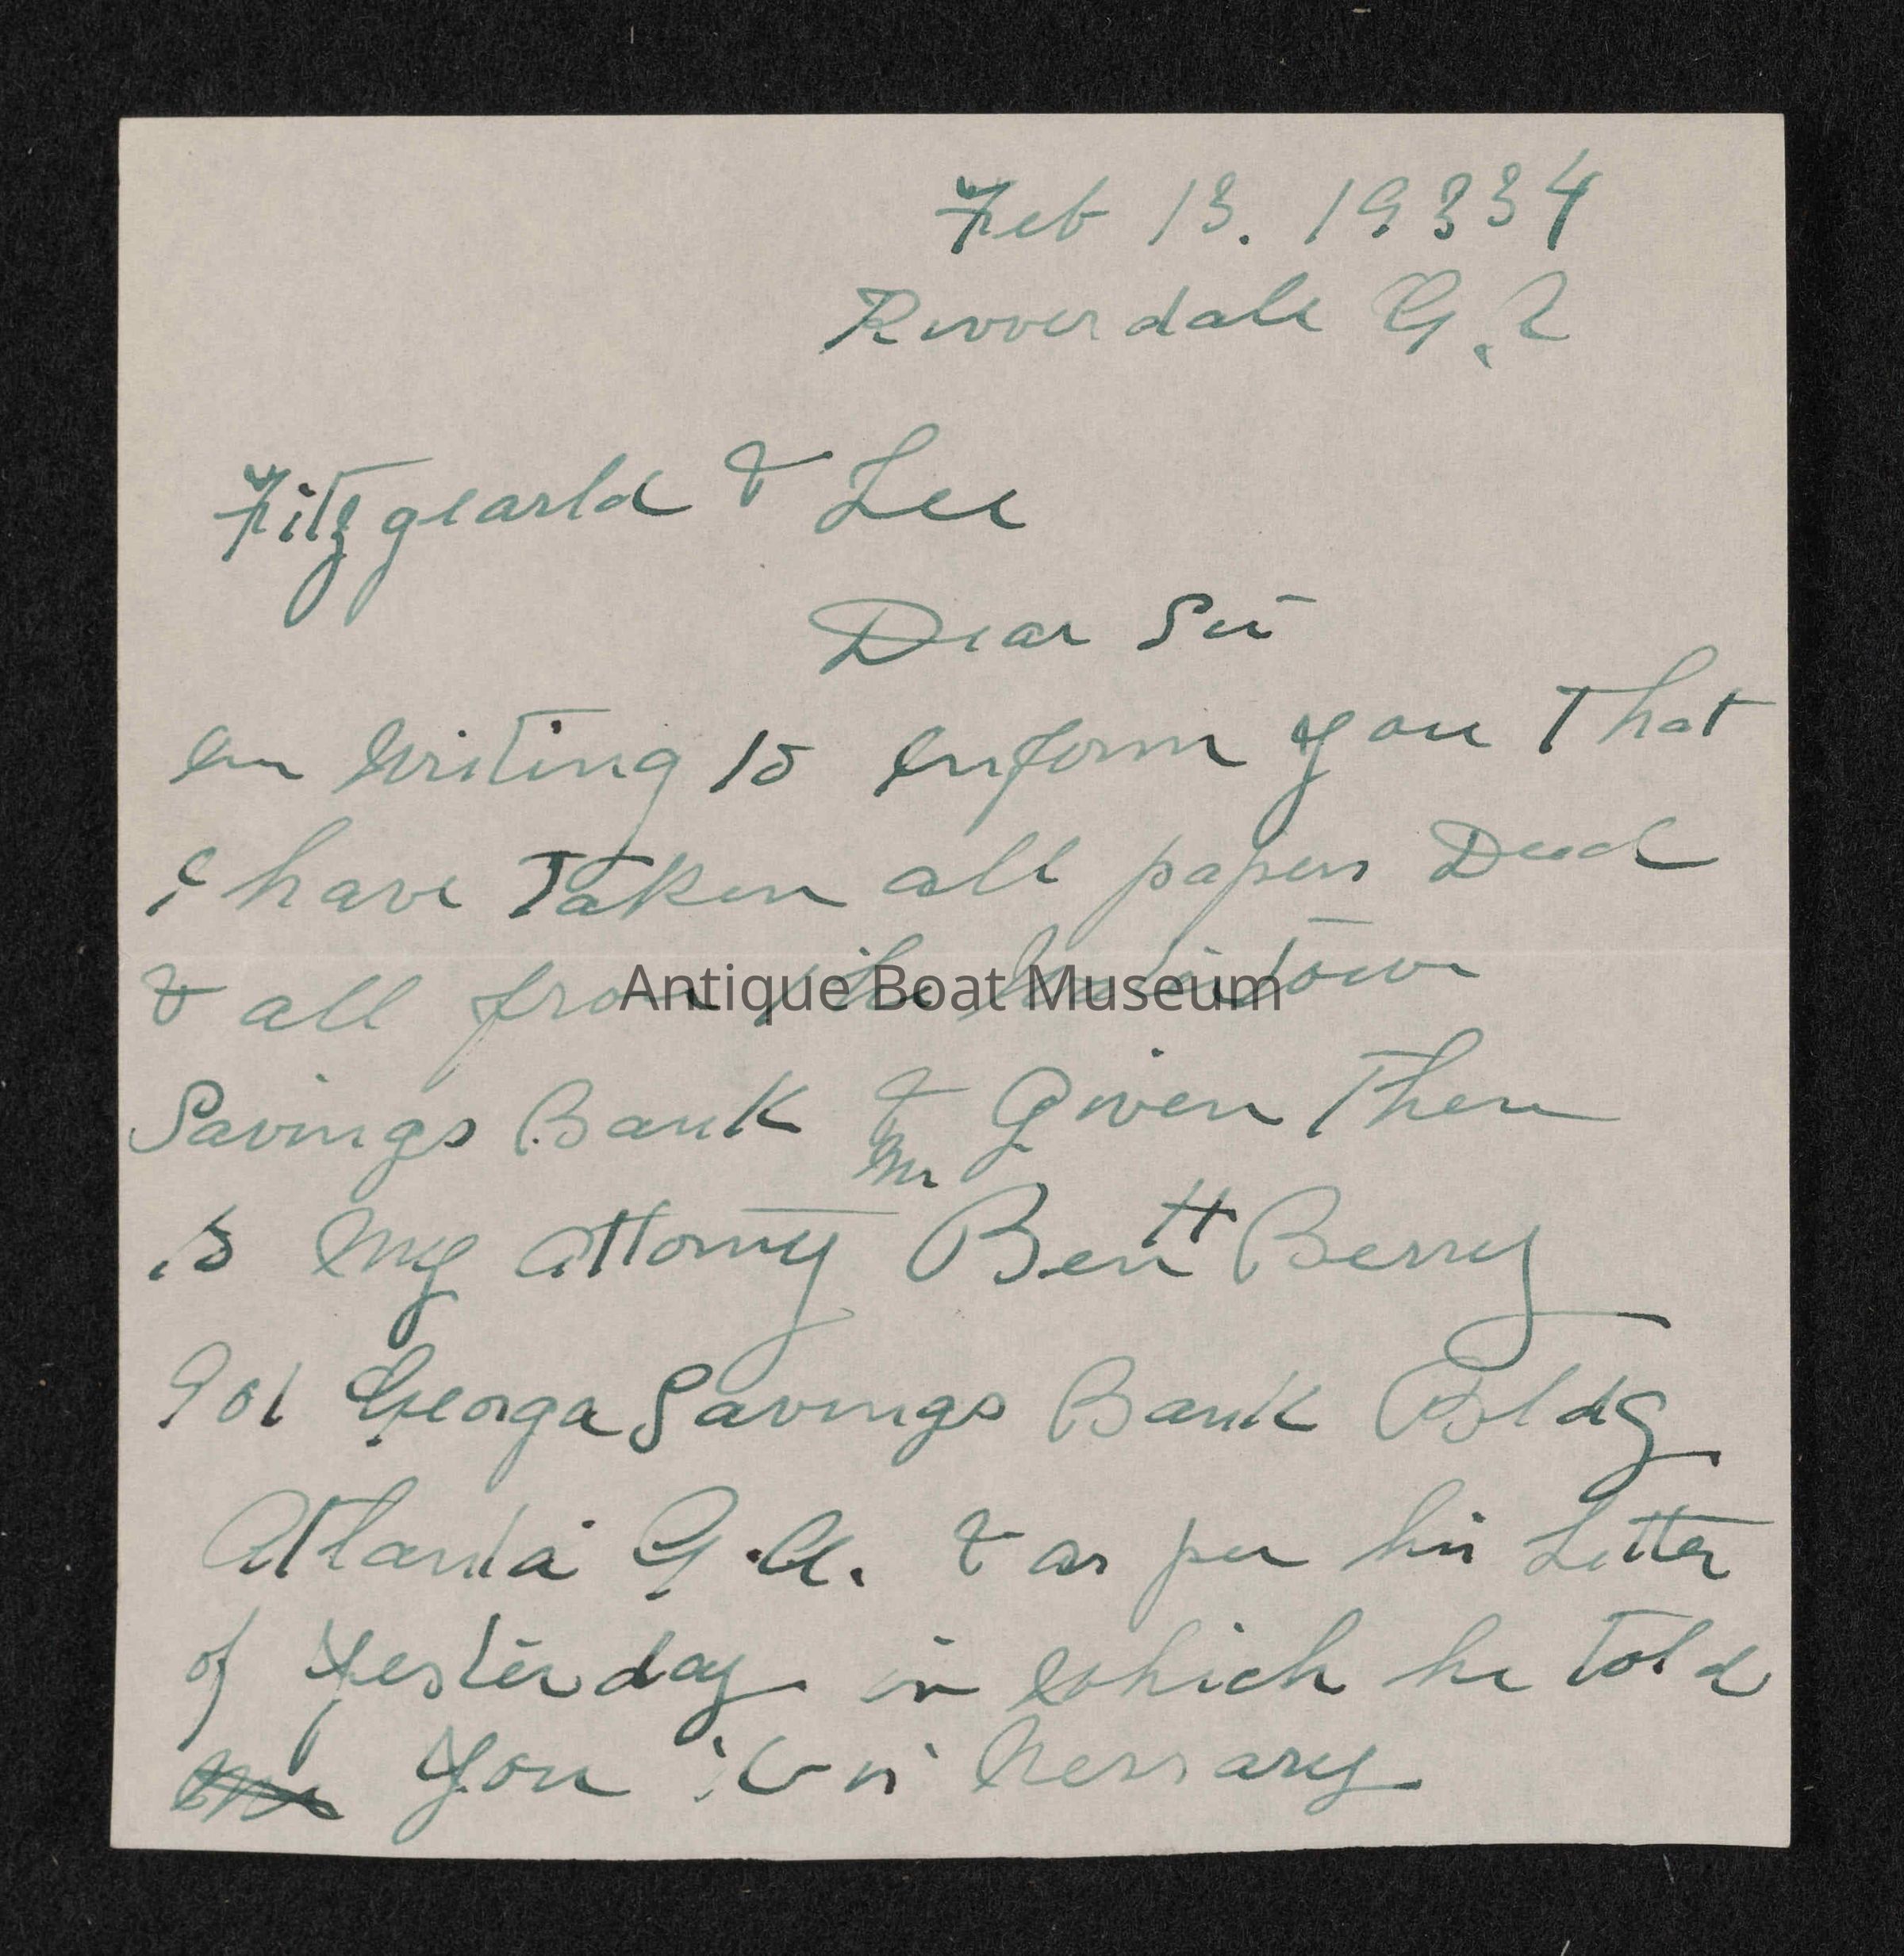 Feb 13. 19334
Rivverdale G.A
Fitzgearld & Lee
Dear Sir
Am Writing to inform you That
i have Taken all papers Deed
& all from the
Antique Boat Museum
Savings Bank & Given Them
to My Attorny Mr Ben H Berry
901 Georga Savings Bank Bldg
Atlanta G.A. & as per his Letter
of Yesterday in which he Told
you it is